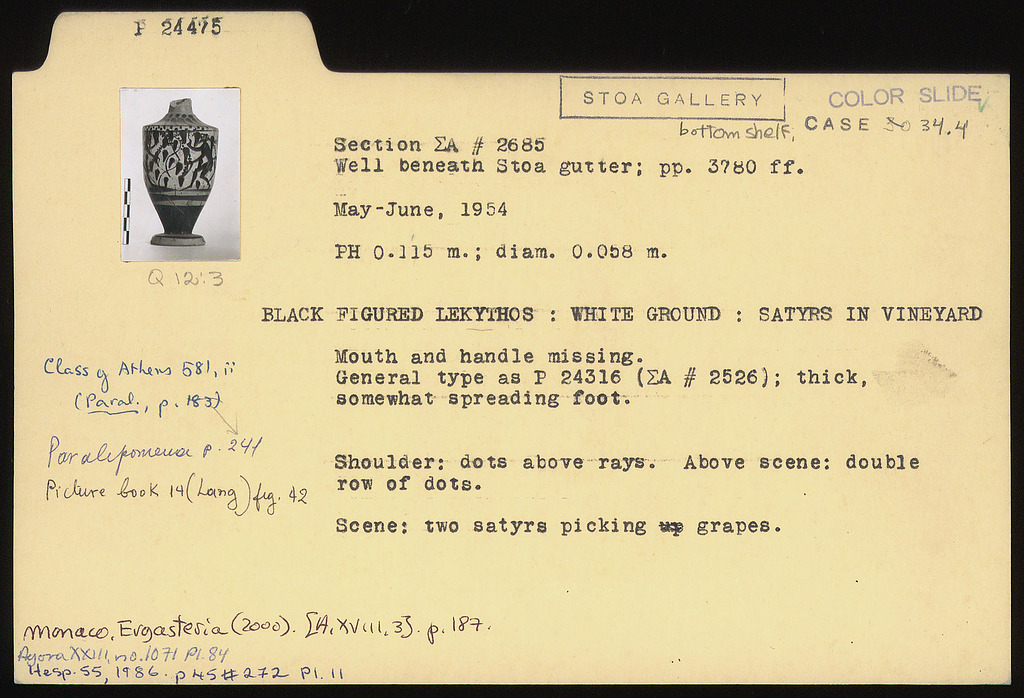 P 24475
STOA GALLERY
COLOR SLIDE
bottom shelf, CASE 30 34.4
Section ΣA # 2685
Well beneath Stoa gutter; pp. 3780 ff.
May-June, 1954
PH 0.115 m.; diam. 0.058 m.
Q 12:3
BLACK FIGURED LEKYTHOS : WHITE GROUND : SATYRS IN VINEYARD
Mouth and handle missing.
General type as P 24316 (ΣA # 2526); thick,
somewhat spreading foot.
Class of Athens 581, ii
(Paral., p. 183)
Paralipomena p. 241
Picture book 14 (Lang) fig. 42
Shoulder: dots above rays. Above scene: double
row of dots.
Scene: two satyrs picking up grapes.
Monaco, Ergasteria (2000). [A. XVIII, 3]. p. 187.
Agora XXIII, no. 1071 Pl. 84
Hesp. 55, 1986. p 45 # 272 Pl. 11